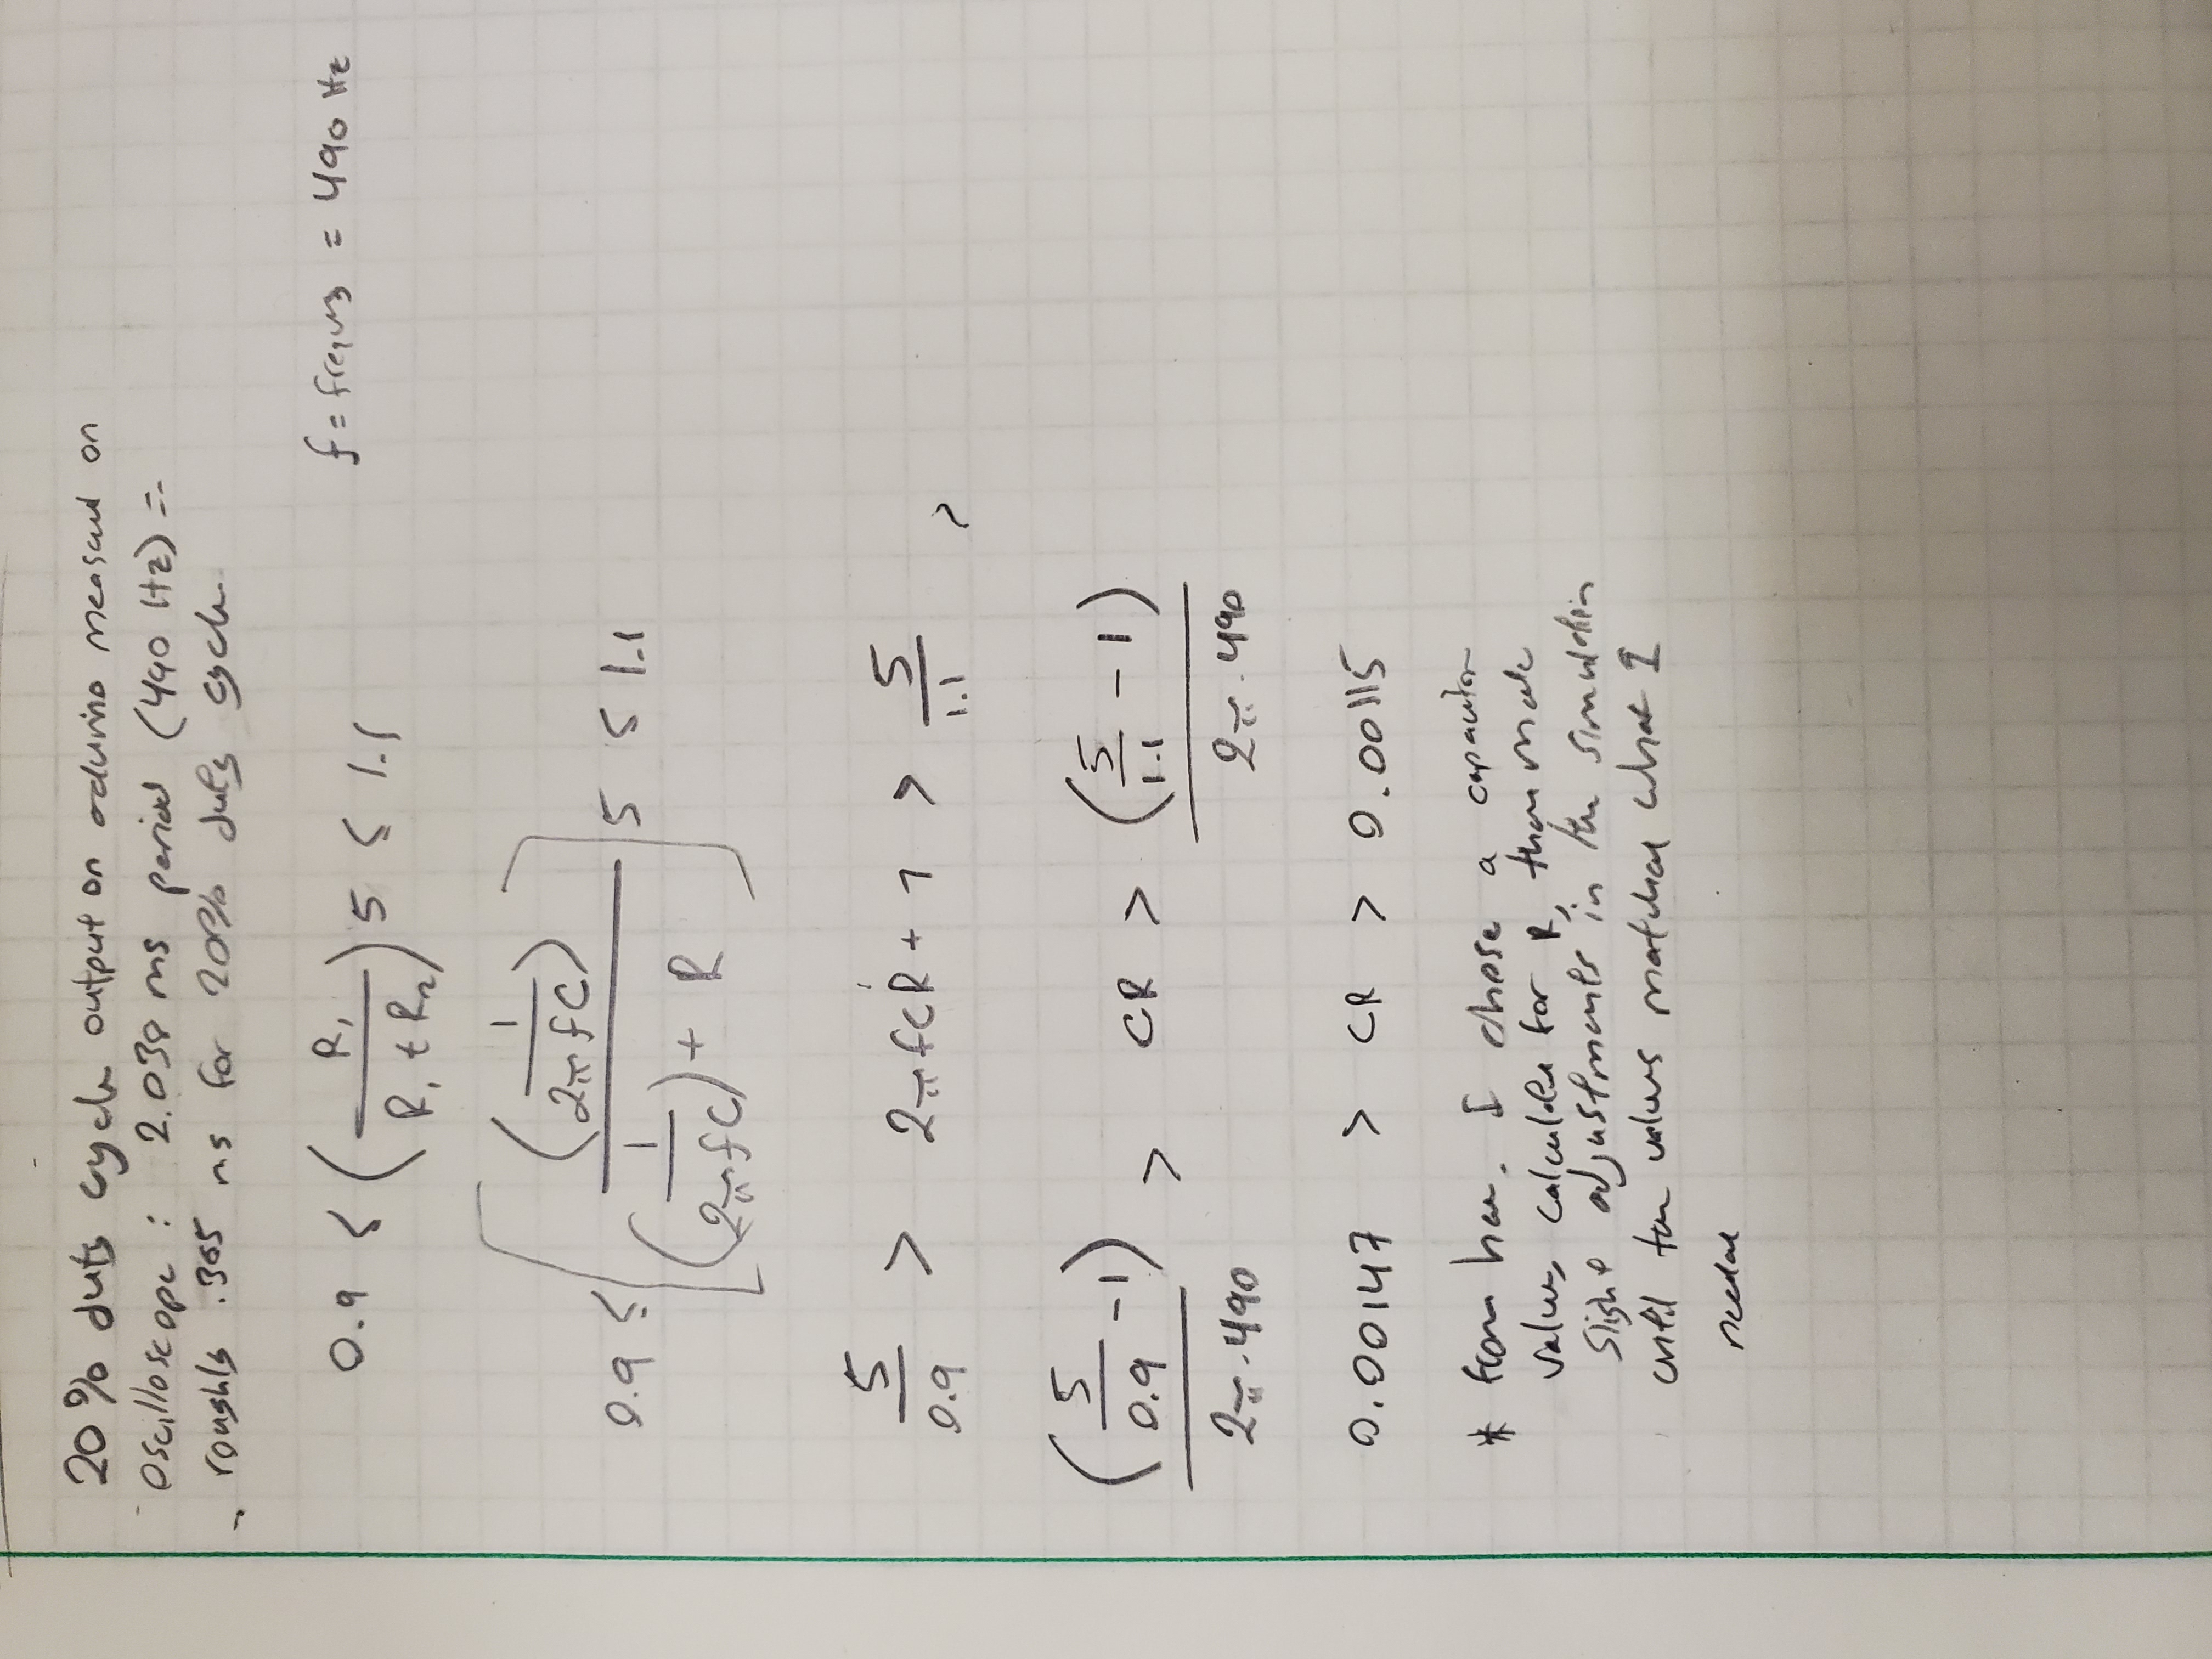 20% duty cycle output on arduino measured on
oscilloscope : 2.038 ms period (490 Hz) =
roughly .365 ms for 20% duty cycle
0.9 ≤ (R₁ / (R₁ + R₂)) 5 ≤ 1.1 f = frequency = 490 Hz
0.9 ≤ [(1 / 2πfC) / ((1 / 2πfC) + R)] 5 ≤ 1.1
5 / 0.9 > 2πfCR + 1 > 5 / 1.1 ,
(5 / 0.9 - 1) / 2π·490 > CR > (5 / 1.1 - 1) / 2π·490
0.00147 > CR > 0.00115
* from here. I chose a capacitor
value, calculated for R, then made
slight adjustments in the simulation
until the values matched what I
needed